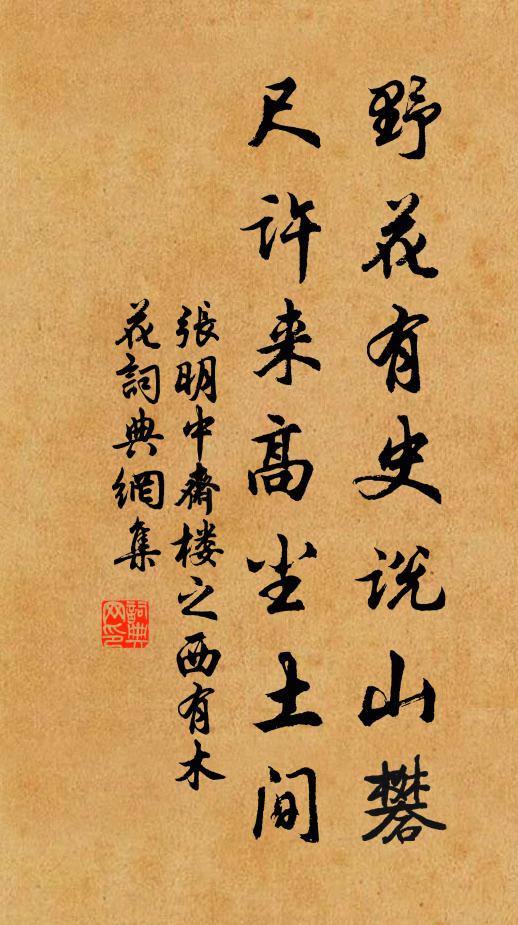 野花有史说山礬
尺许来高尘土间
張明中齋楼之西有木
花詞典網集
詞典
网印